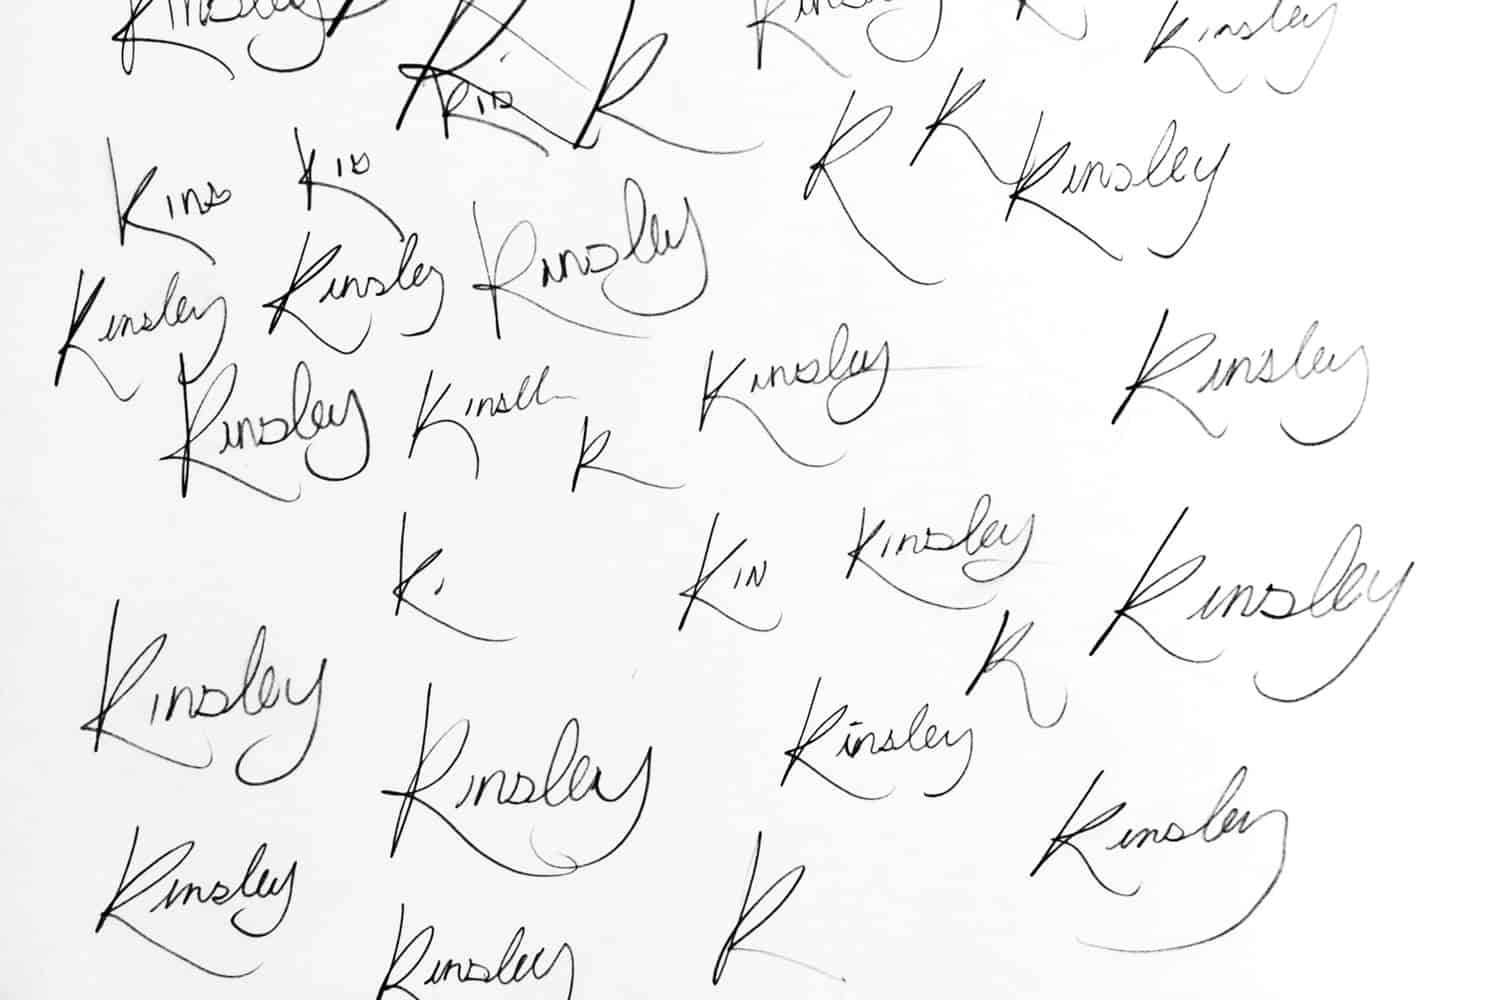 Kinsley
Kinsley
Kinsley
K
Kin
K
K
Kinsley
Kins
Kis
Kinsley
Kinsley
Kinsley
Kinsley
Kinsley
Kinsley
K
Kinsley
K
Ki
Kin
Kinsley
Kinsley
K
Kinsley
Kinsley
Kinsley
Kinsley
Kinsley
K
Kinsley